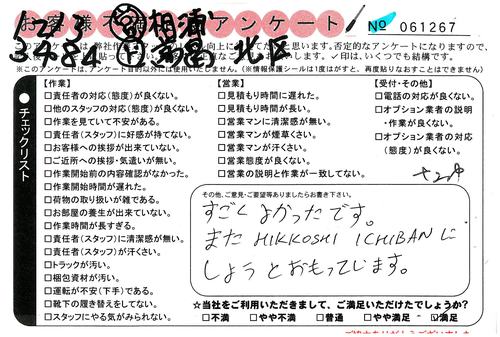 お客様不満足アンケート
№ 061267
1213 相浦
3784 広島 北区
このアンケートは、弊社作業
と思います。否定的なアンケートになりますので、
✓印は、いくつでも結構です。
※このアンケートは、アンケート目的以外には使用いたしません。(※情報保護シールは1度はがすと、再度貼りなおすことはできません)
チェックリスト
【作業】
□責任者の対応(態度)が良くない。
□他のスタッフの対応(態度)が良くない。
□作業を見ていて不安がある。
□責任者(スタッフ)に好感が持てない。
□お客様への挨拶が出来ていない。
□ご近所への挨拶・気遣いが無い。
□作業開始前の内容確認がなかった。
□作業開始時間が遅れた。
□荷物の取り扱いが雑である。
□お部屋の養生が出来ていない。
□作業時間が長すぎる。
□責任者(スタッフ)に清潔感が無い。
□責任者(スタッフ)が汗くさい。
□トラックが汚い。
□梱包資材が汚い。
□運転が不安(下手)である。
□靴下の履き替えをしてない。
□スタッフにやる気がみられない。
【営業】
□見積もり時間に遅れた。
□見積もり時間が長い。
□営業マンに清潔感が無い。
□営業マンが煙草くさい。
□営業マンが汗くさい。
□営業態度が良くない。
□営業の説明と作業が一致してない。
【受付・その他】
□電話の対応が良くない。
□オプション業者の説明
・作業が良くない。
□オプション業者の対応
(態度)が良くない。
その他、ご意見・ご要望等ありましたらお書き下さい。
すごく よかったです。
また HIKKOSHI ICHIBANに
しようとおもっています。
☆当社をご利用いただきまして、ご満足いただけたでしょうか?
□不満 □やや不満 □普通 □やや満足 ☑満足
ご協力ありがとうございました